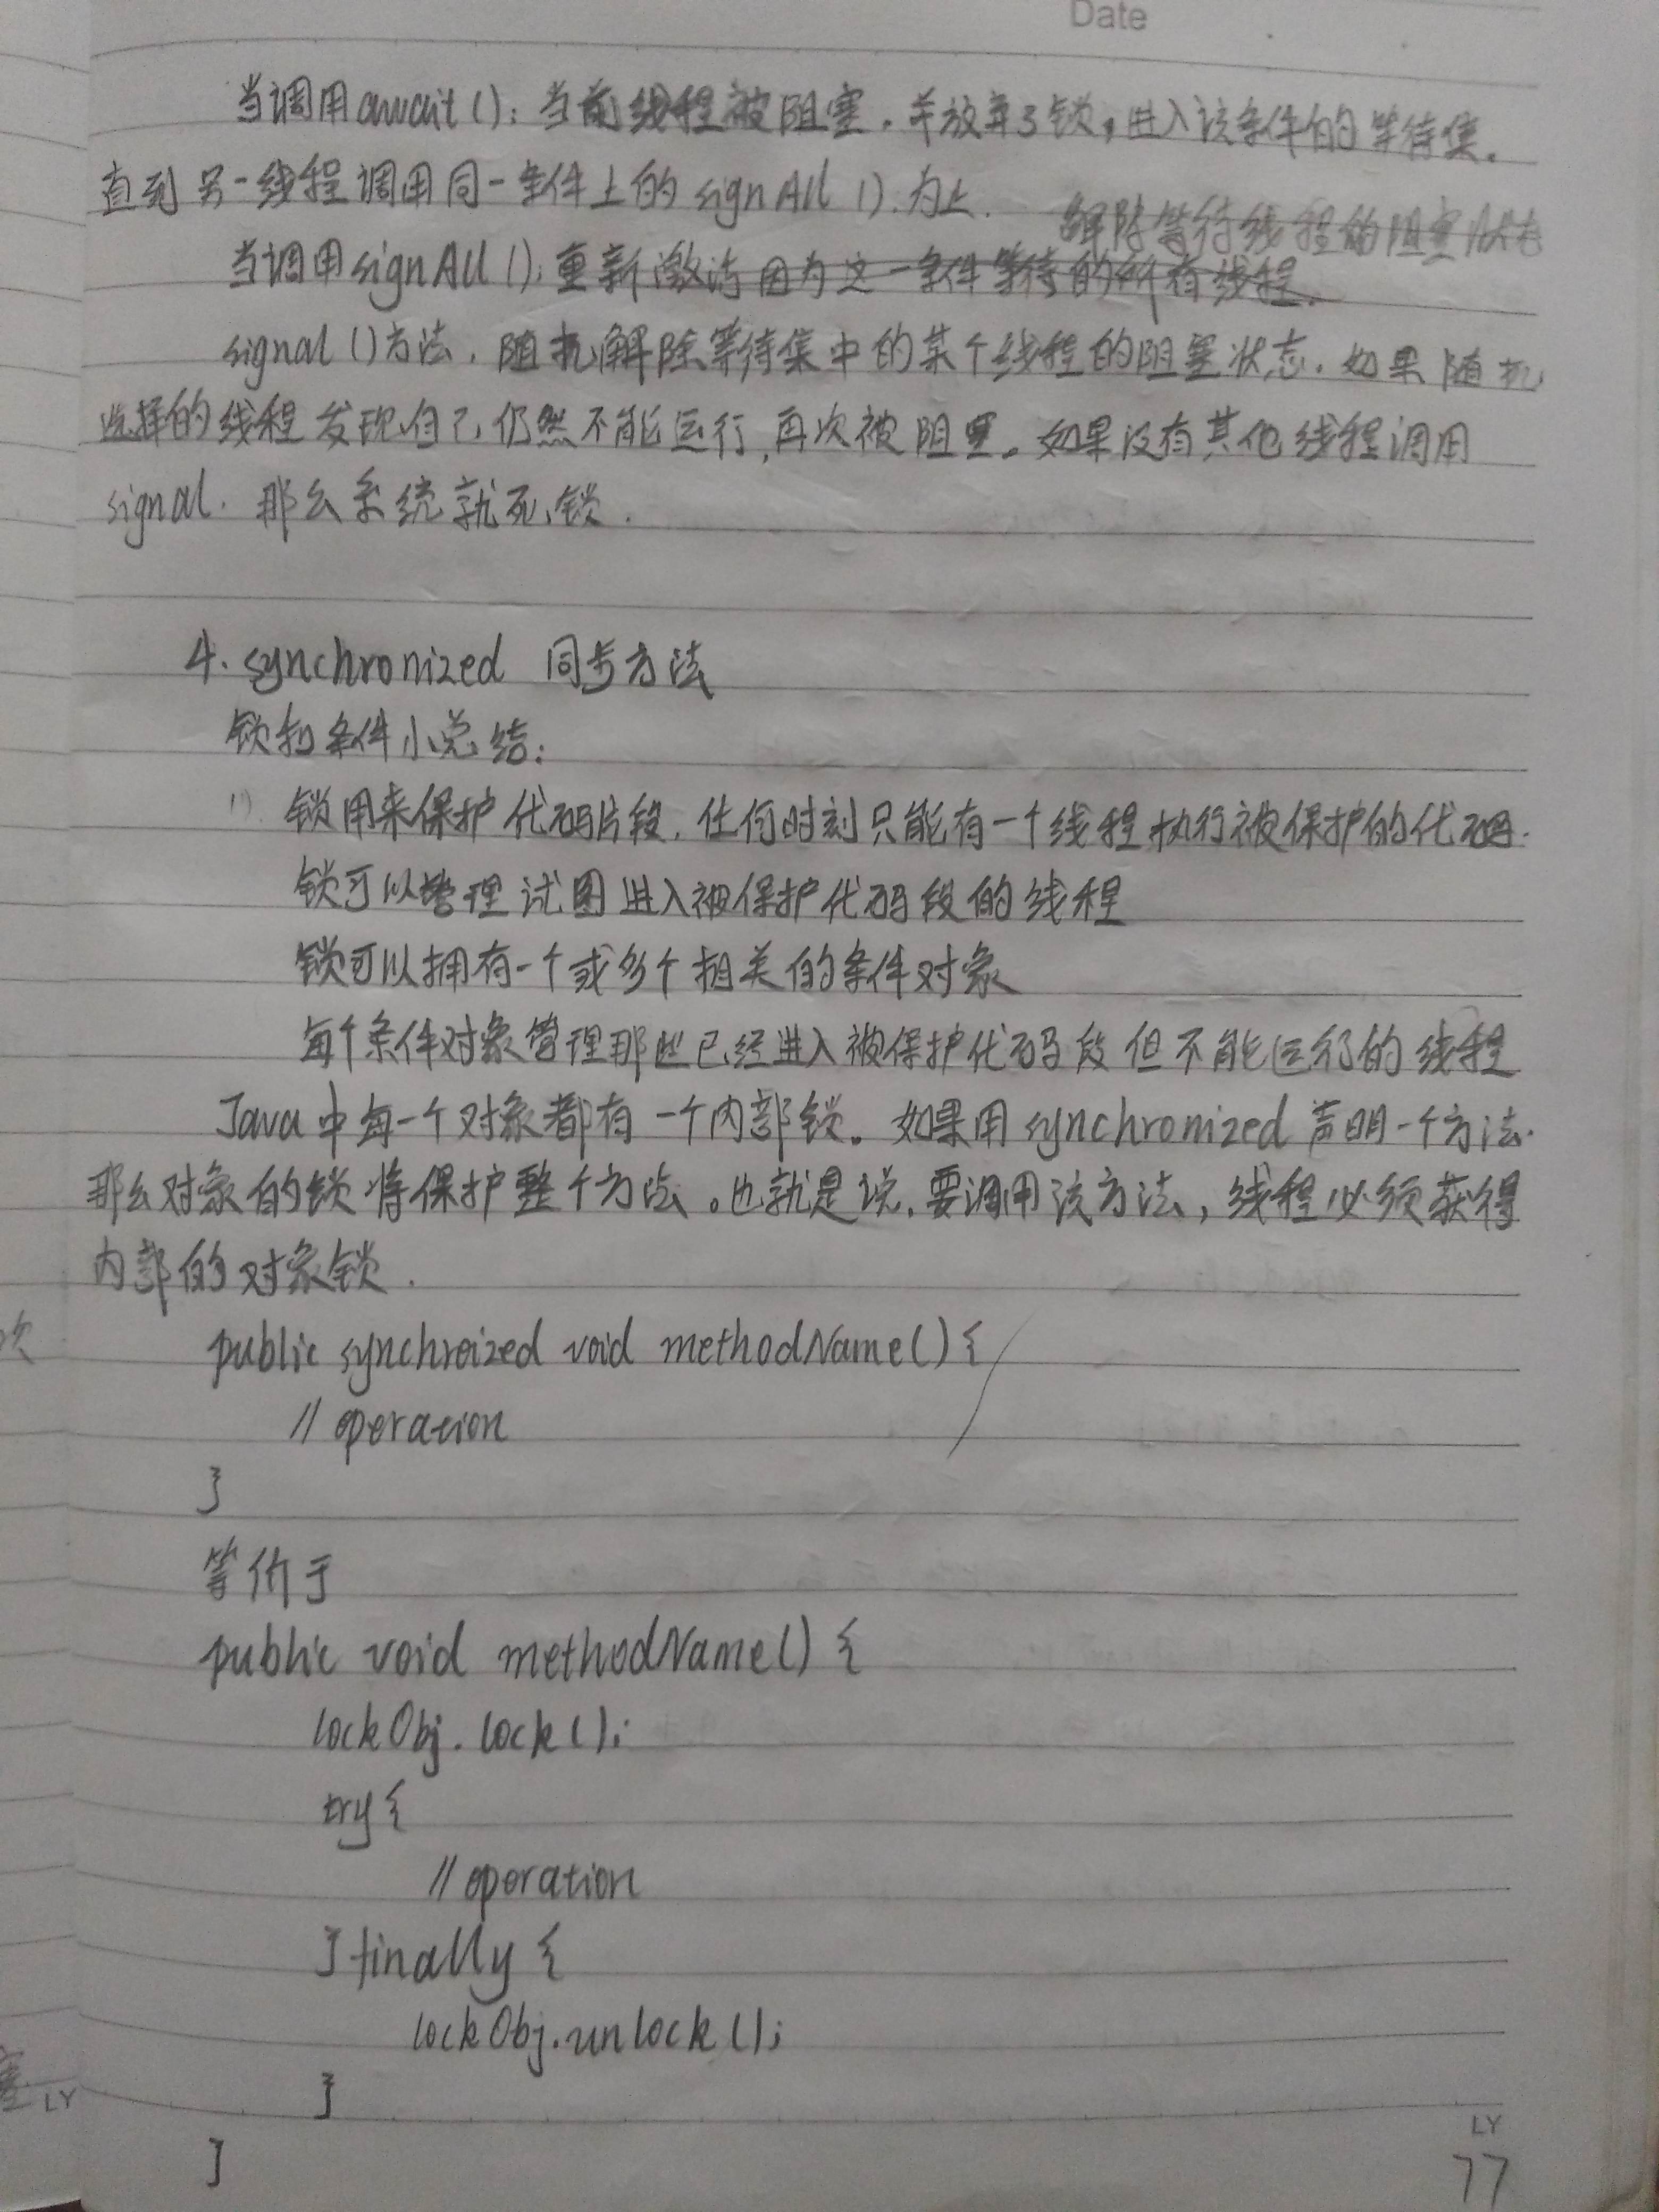 Date
当调用await()：当前线程被阻塞，并放弃了锁，进入该条件的等待集。
直到另一线程调用同一条件上的signAll()为止.
解除等待线程的阻塞状态
当调用signAll()：重新激活因为这一条件等待的所有线程.
signal()方法，随机解除等待集中的某个线程的阻塞状态．如果随机
选择的线程发现自己仍然不能运行，再次被阻塞。如果没有其他线程调用
signal．那么系统就死锁．
4. synchronized 同步方法
锁和条件小总结：
1) 锁用来保护代码片段．任何时刻只能有一个线程执行被保护的代码．
锁可以管理试图进入被保护代码段的线程
锁可以拥有一个或多个相关的条件对象
每个条件对象管理那些已经进入被保护代码段但不能运行的线程
Java中每一个对象都有一个内部锁。如果用synchronized声明一个方法．
那么对象的锁将保护整个方法。也就是说，要调用该方法，线程必须获得
内部的对象锁．
public synchroized void methodName() {
// operation
}
等价于
public void methodName() {
lockObj.lock();
try {
// operation
} finally {
lockObj.unlock();
}
}
次
塞
LY
LY
77